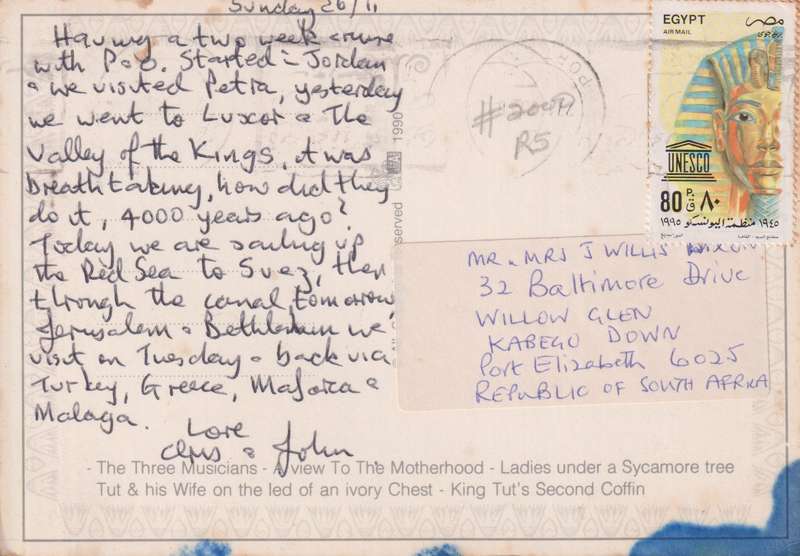 Sunday 26/11
Having a two week cruise
with P&O. Started - Jordan
& we visited Petra, yesterday
we went to Luxor & The
Valley of the Kings, it was
breathtaking, how did they
do it, 4000 years ago?
Today we are sailing up
the Red Sea to Suez, then
through the canal tomorrow,
Jerusalem & Bethlehem we
visit on Tuesday & back via
Turkey, Greece, Majorca &
Malaga.
Love
Chris & John.
#2007
R5
served
1990
EGYPT
مصر
AIR MAIL
بريد جوى
UNESCO
80 P. ق ٨٠
١٩٩٥ منظمة اليونسكو ١٩٤٥
MR & MRS J WILLIS
32 Baltimore Drive
WILLOW GLEN
KABEGO DOWN
Port Elizabeth 6025
REPUBLIC OF SOUTH AFRICA
- The Three Musicians - A view To The Motherhood - Ladies under a Sycamore tree
Tut & his Wife on the led of an ivory Chest - King Tut's Second Coffin